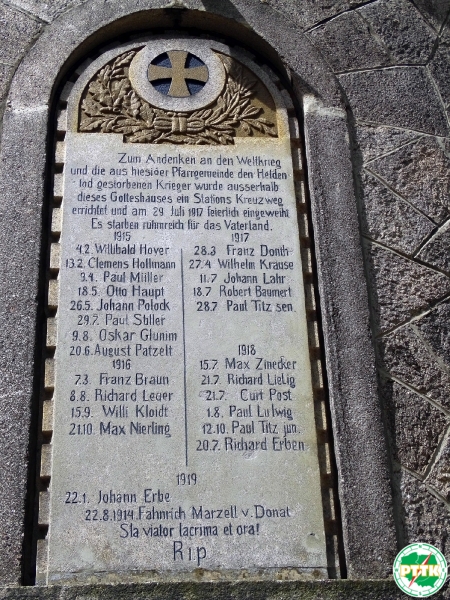 Zum Andenken an den Weltkrieg
und die aus hiesiger Pfarrgemeinde den Helden
tod gestorbenen Krieger wurde ausserhalb
dieses Gotteshauses ein Stations Kreuzweg
errichtet und am 29 Juli 1917 feierlich eingeweiht.
Es starben ruhmreich für das Vaterland.
1915
4.2. Willibald Hover
13.2. Clemens Hollmann
9.4. Paul Müller
18.5. Otto Haupt
26.5. Johann Polock
29.7. Paul Stiller
9.8. Oskar Glunim
20.6. August Patzelt
1916
7.3. Franz Braun
8.8. Richard Leuer
15.9. Willi Kloidt
21.10. Max Nierling
1917
28.3. Franz Donth
27.4. Wilhelm Krause
11.7. Johann Lahr
18.7. Robert Baumert
28.7. Paul Titz sen.
1918
15.7. Max Zinecker
21.7. Richard Liebig
21.7. Curt Post
1.8. Paul Lulwig
12.10. Paul Titz jun.
20.7. Richard Erben
1919
22.1. Johann Erbe
22.8.1914. Fähnrich Marzell v. Donat
Sta viator lacrima et ora!
R.i.p.
PTTK